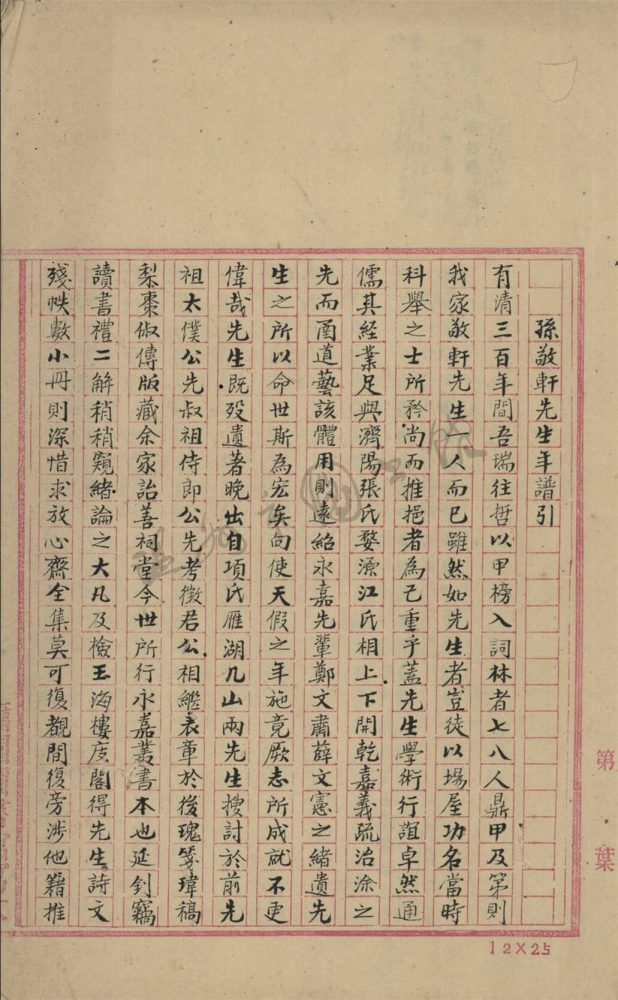 孫敬軒先生年譜引
有清三百年間吾瑞往哲以甲榜入詞林者七八人鼎甲及第則
我家敬軒先生一人而已雖然如先生者豈徒以場屋功名當時
科舉之士所矜尚而推挹者為己重乎蓋先生學術行誼卓然通
儒其經業足與濟陽張氏婺源江氏相上下開乾嘉義疏治涂之
先而函道藝該體用則遠紹永嘉先輩鄭文肅薛文憲之緒遺先
生之所以命世斯為宏矣向使天假之年施竟厥志所成就不更
偉哉先生既歿遺著晚出自項氏雁湖几山兩先生搜討於前先
祖太僕公先叔祖侍郎公先考徵君公相繼表章於後瑰箋瑋稿
梨棗俶傳版藏余家詒善祠堂今世所行永嘉叢書本也延釗竊
讀書禮二解稍稍窺緒論之大凡及檢玉海樓庋閣得先生詩文
殘帙數小冊則深惜求放心齋全集莫可復覩間復旁涉他籍推
第 葉
12×25